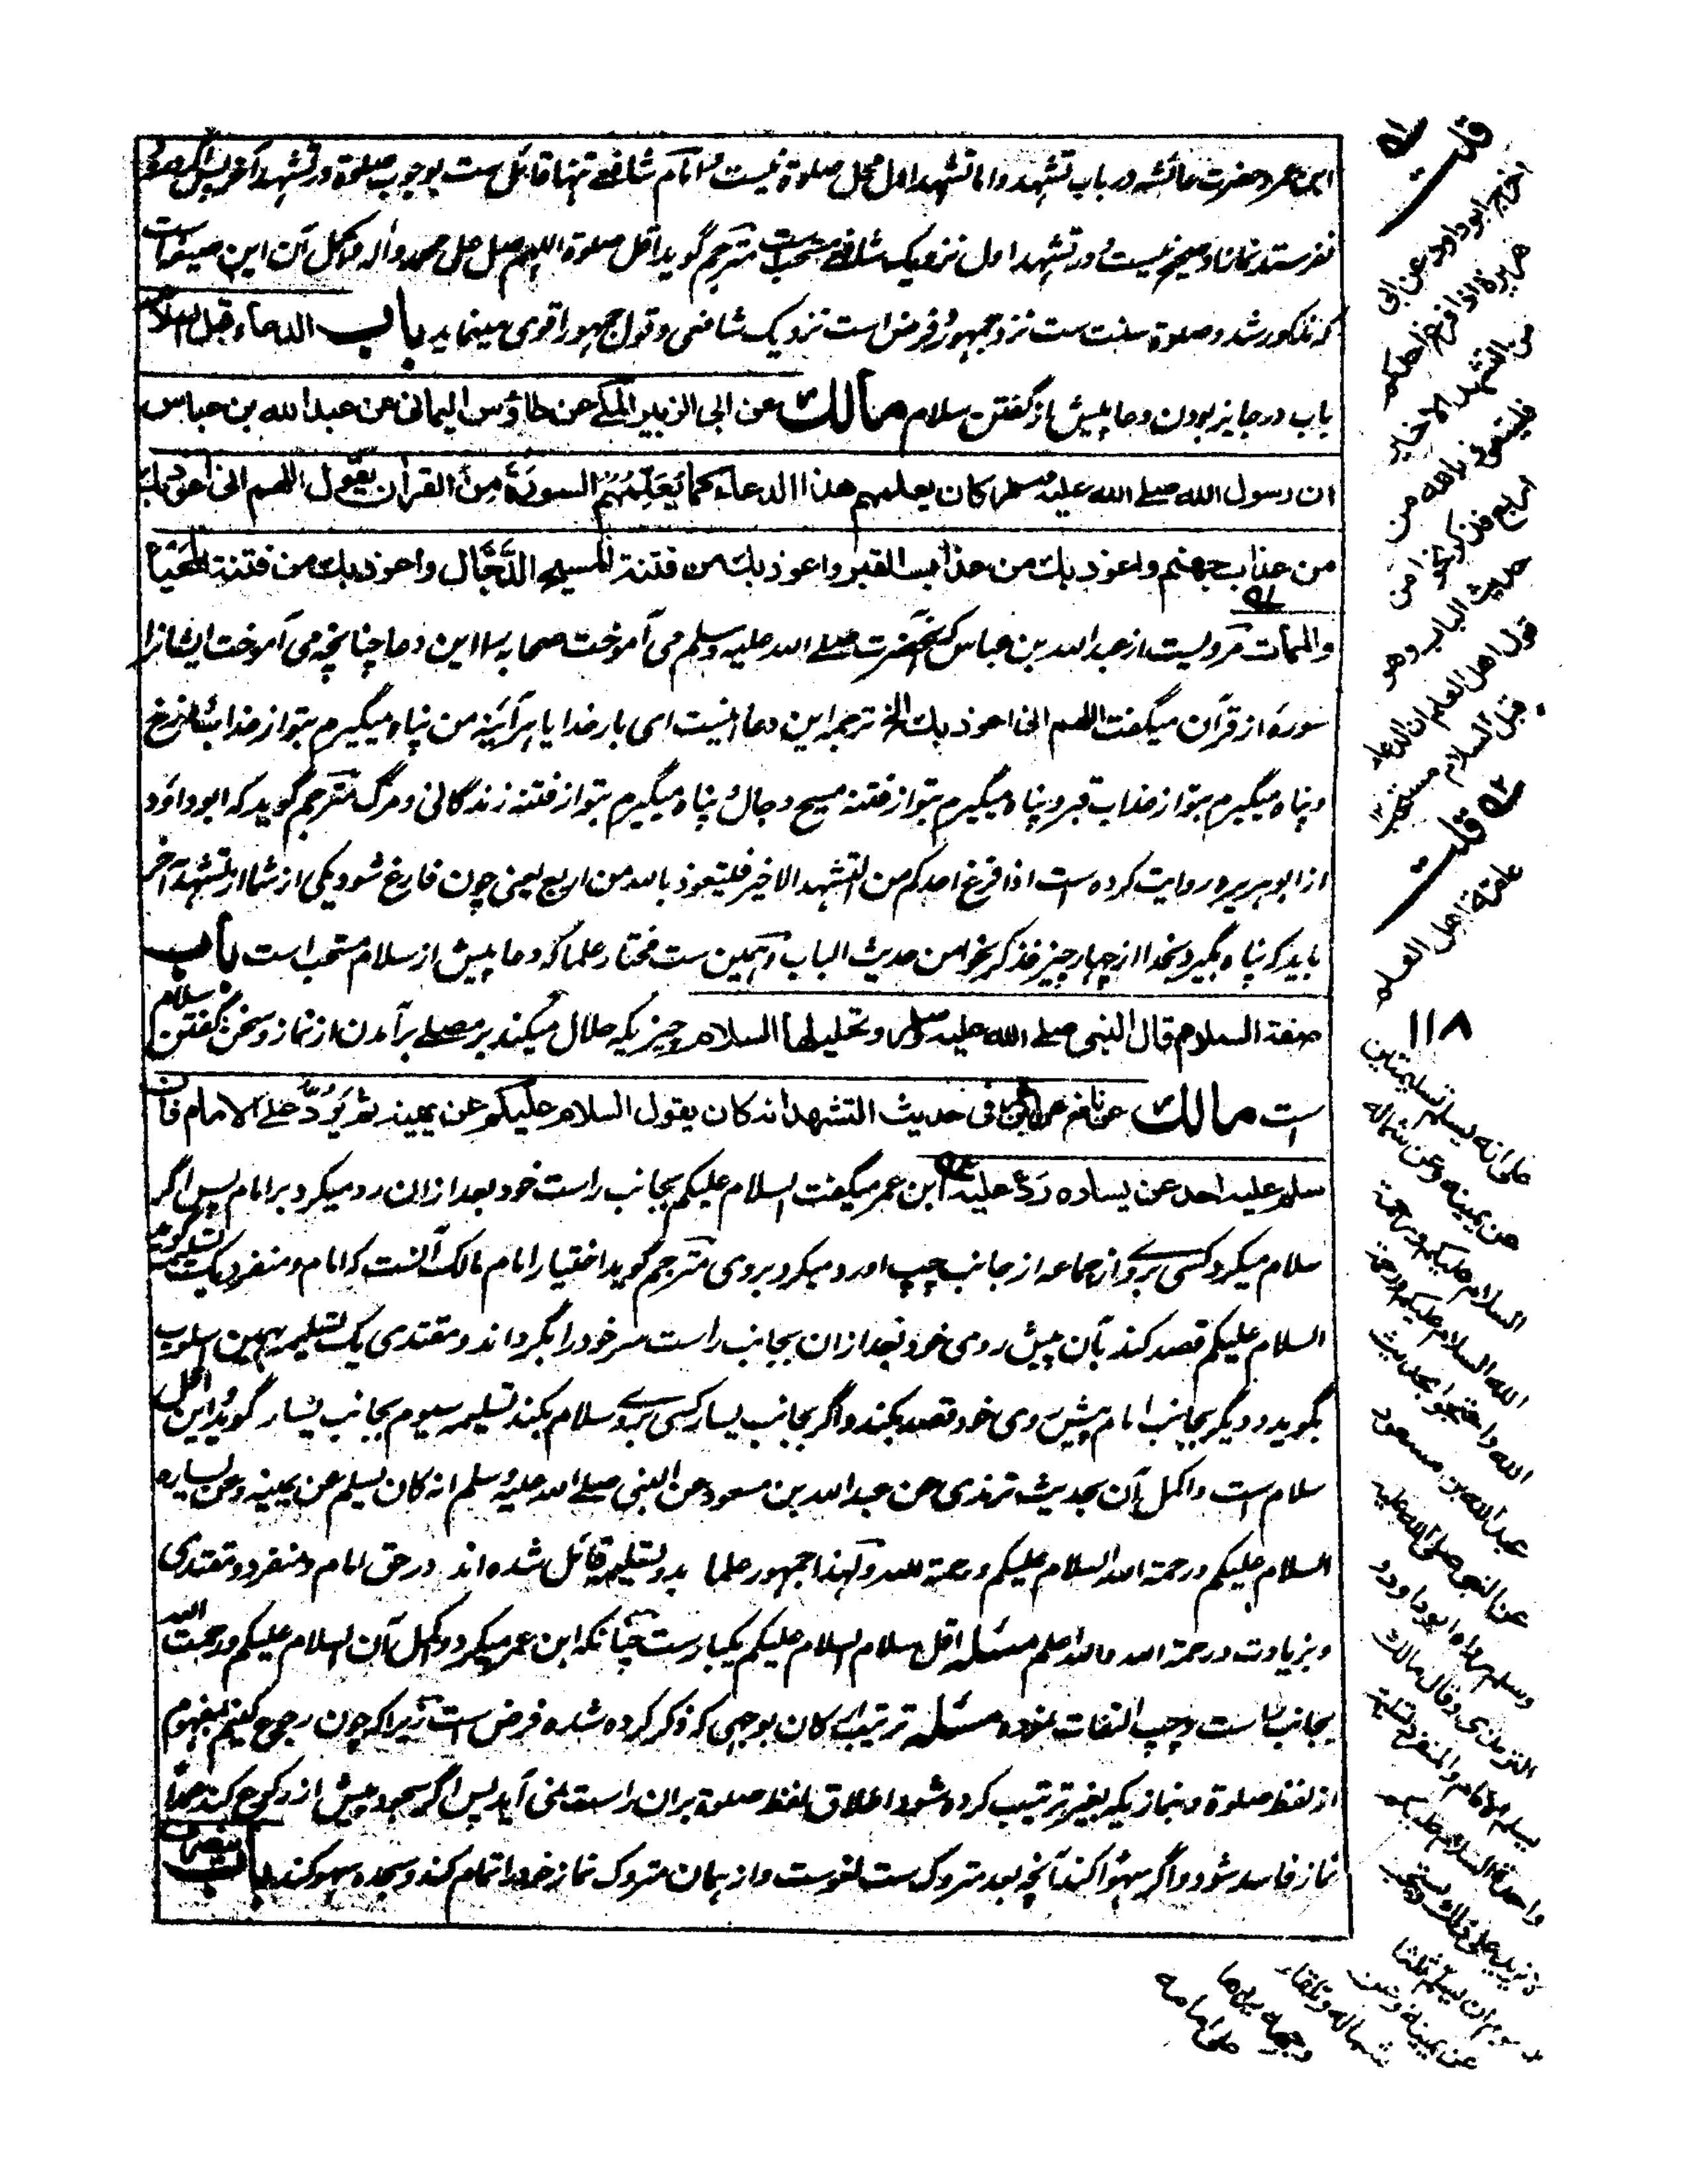 ابن عمر و حضرت عائشه در باب تشهد و اما تشهد اول محل صلوة نیست و امام شافعے تنها قائل ست بوجوب صلوة در تشهد آخر پس اگر درود
نفرستد نماز او صحیح نیست و در تشهد اول نزدیک شافعے مستحب ست مترجم گوید اقل صلوة اللهم صل علی محمد و آله و اکمل آن این صیغهاست
که مذکور شد و صلوة سنت ست نزد جمهور و فرض است نزدیک شافعی و قول جمهور اقوی مینماید باب الدعاء قبل السلام
باب در جایز بودن دعا پیش از گفتن سلام مالك عن ابی الزبیر المکے عن طاؤس الیمانی عن عبد الله بن عباس
ان رسول الله صلے الله علیه وسلم کان یعلمهم هذا الدعاء کما یُعَلِّمُهُم السورَةَ مِنَ القران یقول اللهم انی اعوذ بك
من عذاب جهنم واعوذ بك من عذاب القبر واعوذ بك من فتنة المسیح الدَّجَّال واعوذ بك من فتنة المَحْیَا
والممات مرویست از عبد الله بن عباس که آنحضرت صلے الله علیه وسلم می آموخت صحابه را این دعا چنانچه می آموخت ایشانرا
سوره از قرآن میگفت اللهم انی اعوذ بك الخ ترجمه این دعا اینست ای بار خدایا هر آئینه من پناه میگیرم بتو از عذاب دوزخ
و پناه میگیرم بتو از عذاب قبر و پناه میگیرم بتو از فتنه مسیح دجال و پناه میگیرم بتو از فتنه زندگانی و مرگ مترجم گوید که ابو داؤد
از ابو هریره روایت کرده ست اذا فرغ احدکم من التشهد الاخیر فلیتعوذ بالله من اربع یعنی چون فارغ شود یکی از شما از تشهد آخر
باید که پناه بگیرد بخدا از چهار چیز فذکر نحوا من حدیث الباب و همین ست مختار علما که دعا پیش از سلام مستحب است باب
صفة السلام قال النبی صلے الله علیه وسلم وتحلیلها السلام چیزیکه حلال میکند بر مصلے برآمدن از نماز و سخن گفتن سلام
است مالك عن نافع عن ابن عمر فی حدیث التشهد انه کان یقول السلام علیکم عن یمینه ثم یَرُدُّ علے الامام فان
سلم علیه احد عن یساره رَدَّ علیه ابن عمر میگفت السلام علیکم بجانب راست خود بعد ازان رد میکرد بر امام پس اگر
سلام میکرد کسی برو از جماعه از جانب چپ او رد میکرد بروی مترجم گوید اختیار امام مالک آنست که امام و منفرد یک تسلیمه گوید
السلام علیکم قصد کند بآن پیش روی خود و بعد ازان بجانب راست سر خود را بگرداند و مقتدی یک تسلیمه بهمین اسلوب
بگوید و دیگر بجانب امام پیش روی خود قصد بکند و اگر بجانب یسار کسی برو سلام بکند تسلیمه سیوم بجانب یسار گوید و این اکمل
سلام ست و اکمل آن بحدیث ترمذی عن عبد الله بن مسعود عن النبی صلے الله علیه وسلم انه کان یسلم عن یمینه وعن یساره
السلام علیکم ورحمة الله السلام علیکم ورحمة الله ولهذا جمهور علما بدو تسلیمه قائل شده اند در حق امام و منفرد و مقتدی
و بزیادت ورحمة الله والله اعلم مسئله اقل سلام السلام علیکم یکبارست چنانکه ابن عمر میکرد و اکمل آن السلام علیکم ورحمت الله
بجانب راست و چپ التفات نموده مسئله ترتیب ارکان بوجهی که ذکر کرده شده فرض ست زیرا که چون رجوع کنیم بمفهوم
از لفظ صلوة و نمازیکه بغیر ترتیب کرده شود اطلاق لفظ صلوة بران راست نمی آید پس اگر سجود پیش از رکوع کند عمدًا
نماز فاسد شود و اگر سهوًا کند آنچه بعد متروک ست لغوست و از همان متروک نماز خود را تمام کند و سجده سهو کند باب
قلت
اخرج ابو داود عن ابی
هریرة اذا فرغ احدکم
من التشهد الاخیر
فلیتعوذ بالله من
اربع فذکر نحوا من
حدیث الباب وهو
قول اهل العلم ان الدعاء
قبل السلام مستحب
قلت
عامة اهل العلم
۱۱۸
علی انه یسلم تسلیمتین
عن یمینه وعن شماله
السلام علیکم ورحمة
الله السلام علیکم ورحمة
الله واحتجوا بحدیث
عبد الله بن مسعود
عن النبی صلی الله علیه
وسلم رواه ابو داود و
الترمذی وقال مالك
یسلم الامام والمنفرد تسلیمة
واحدة السلام علیکم
لا یزید علی ذلك ویستحب
للماموم ان یسلم ثلثا
عن یمینه وعن
شماله وتلقاء
وجهه یردها
علی امامه